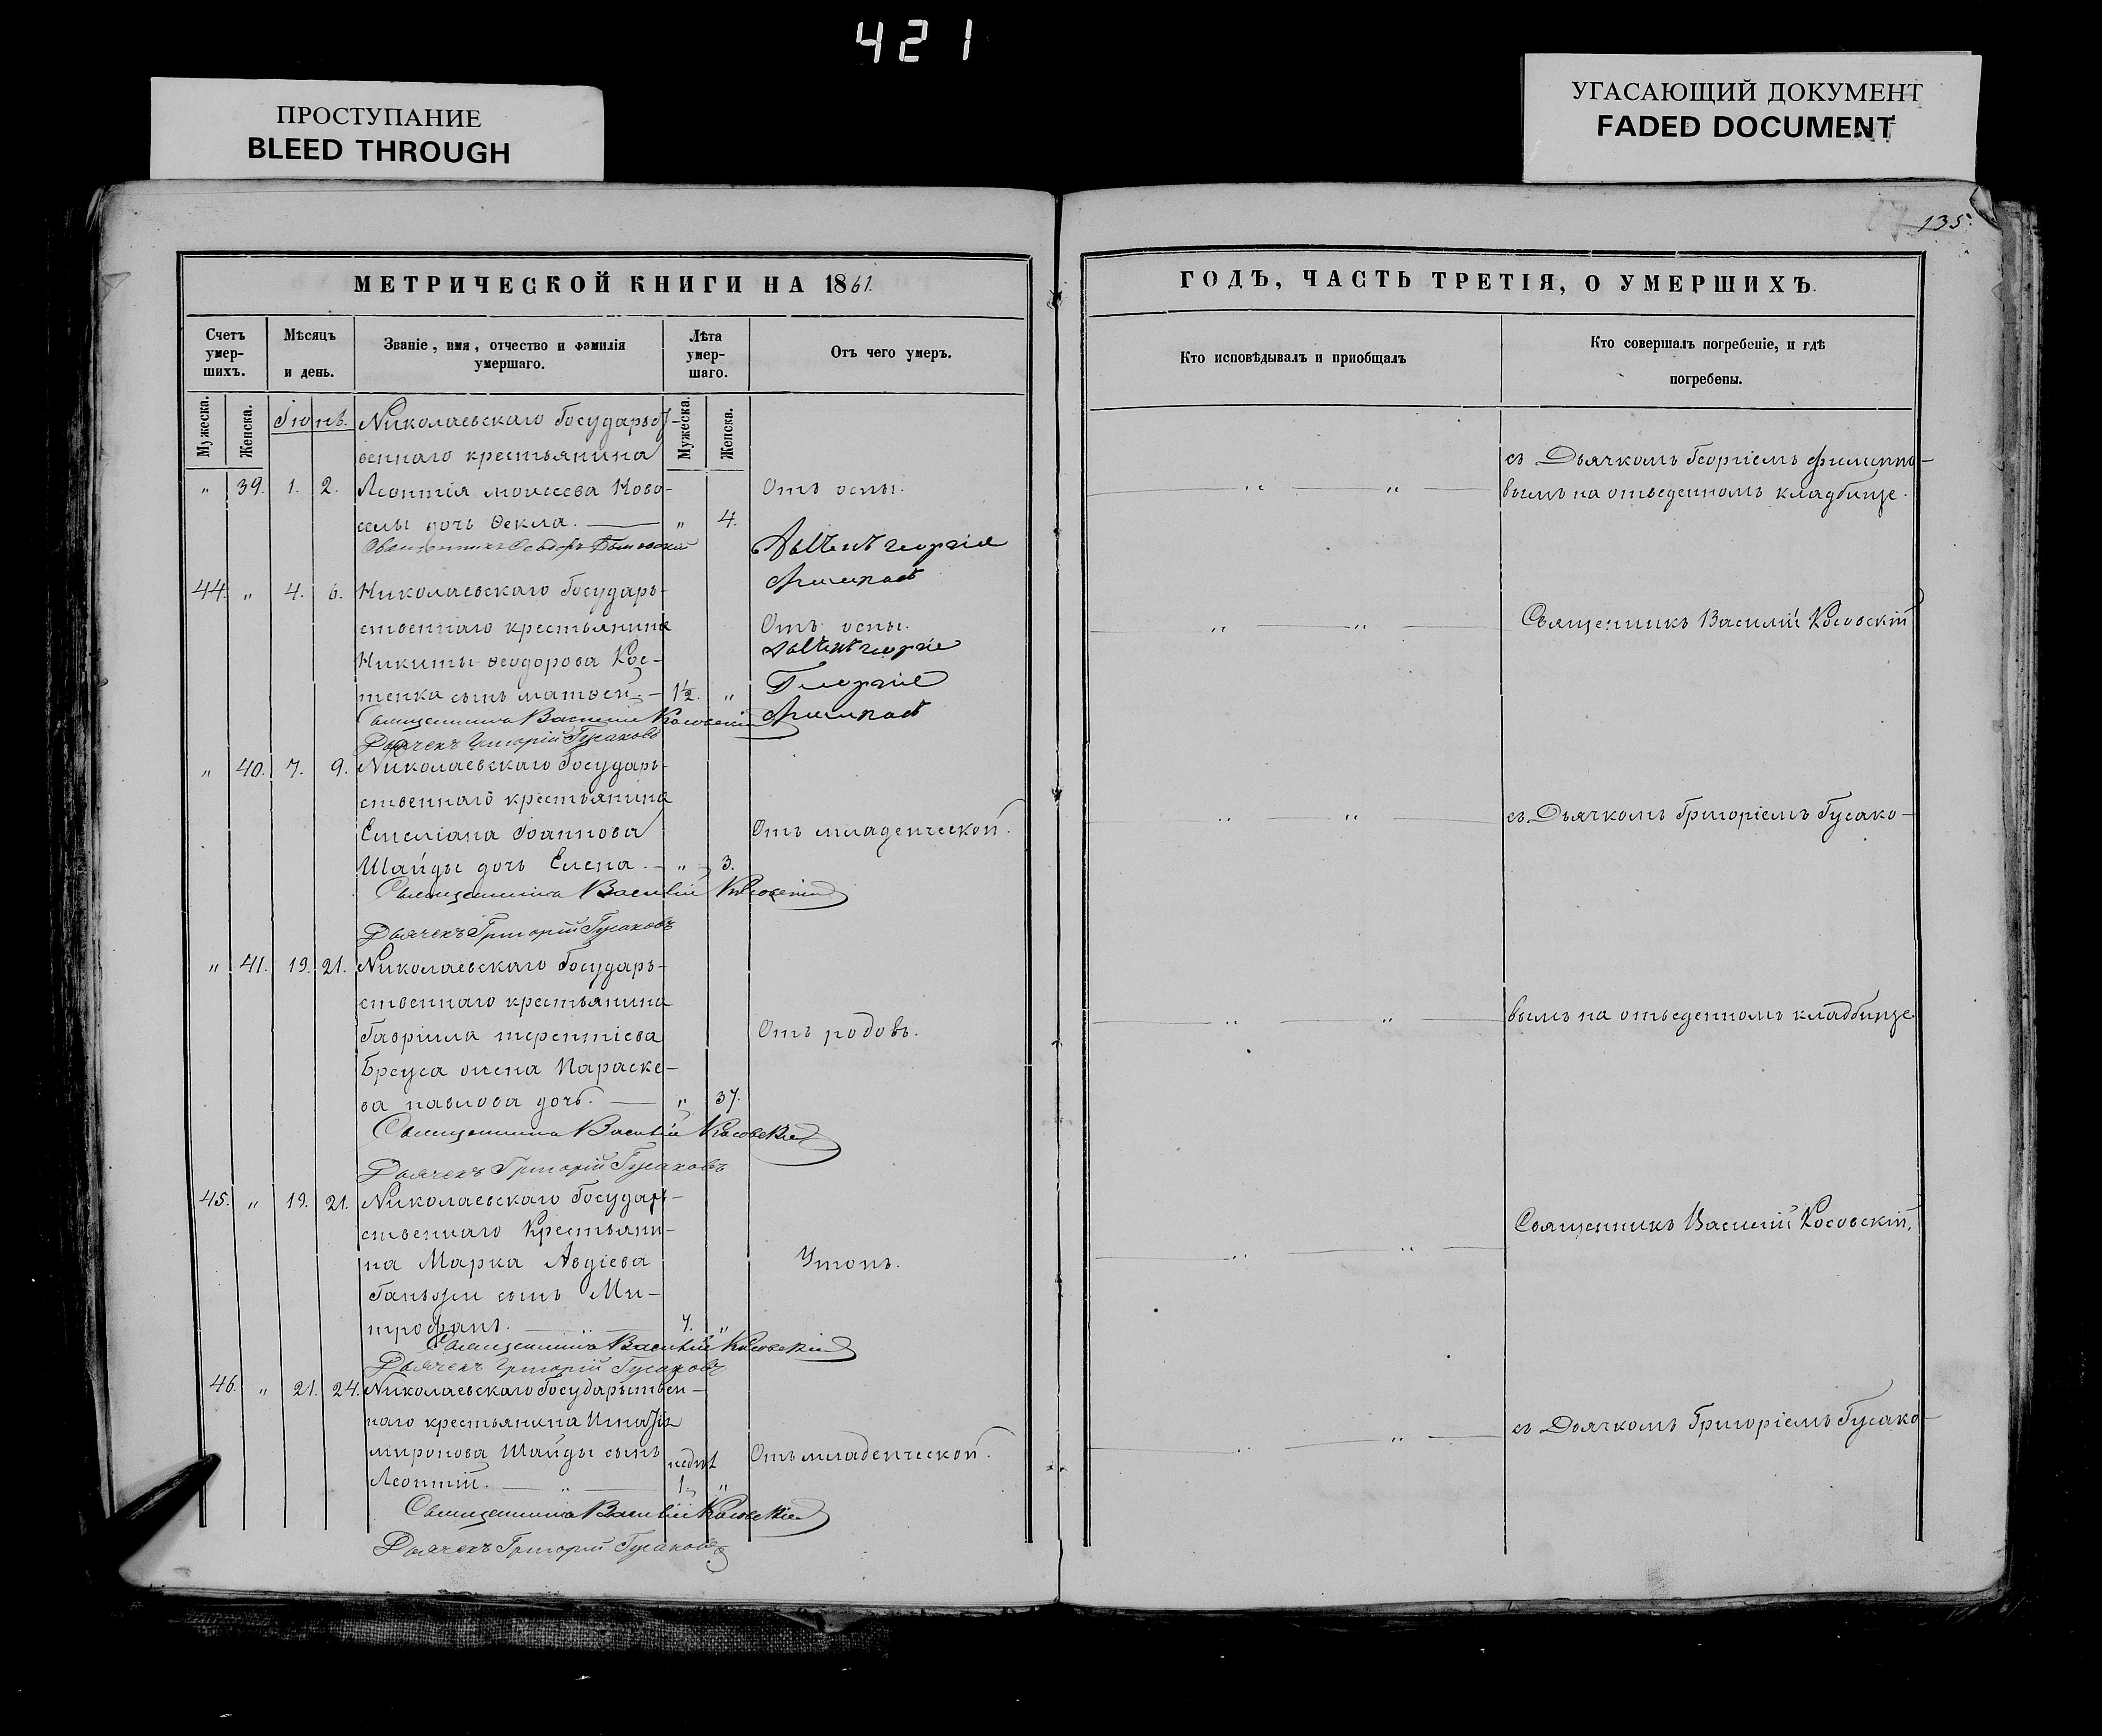 421
ПРОСТУПАНИЕ
BLEED THROUGH
УГАСАЮЩИЙ ДОКУМЕНТ
FADED DOCUMENT
135.
МЕТРИЧЕСКОЙ КНИГИ НА 1861.
Счетъ умер-шихъ.
Мѣсяцъ и день.
Званіе, имя, отчество и фамилія умершаго.
Лѣта умер-шаго.
Отъ чего умеръ.
Мужеска.
Женска.
Мужеска.
Женска.
Іюнь.
Николаевскаго Государст-
веннаго крестьянина
" 39. 1. 2. Леонтія моисеева Ново- Отъ оспы.
селы дочь Ѳекла. — " 4.
Священникъ Ѳеодоръ
44. " 4. 6. Николаевскаго Государь-
ственнаго крестьянина Отъ оспы.
Никиты Ѳеодорова Кос-
тенка сынъ матвей. — 1½. "
Священникъ Василій Косовскій
Дьячекъ Григорій Гусаковъ
" 40. 7. 9. Николаевскаго Государь-
ственнаго крестьянина
Емеліана Іоаннова Отъ младенческой.
Шайды дочь Елена. — " 3.
Священникъ Василій Косовскій
Дьячекъ Григорій Гусаковъ
" 41. 19. 21. Николаевскаго Государь-
ственнаго крестьянина
Гавріила терентіева Отъ родовъ.
Бреуса жена Параске-
ва павлова дочь. — " 37.
Священникъ Василій Косовскій
Дьячекъ Григорій Гусаковъ
45. " 19. 21. Николаевскаго Государ-
ственнаго Крестьяни-
на Марка Авдіева Утопъ.
сынъ Ми-
трофанъ. — " — 7. "
Священникъ Василій Косовскій
Дьячекъ Григорій Гусаковъ
46. " 21. 24. Николаевскаго Государьствен-
наго крестьянина Игнатія
миронова Шайды сынъ Отъ младенческой.
Леонтій. — " — 1. "
Священникъ Василій Косовскій
Дьячекъ Григорій Гусаковъ
ГОДЪ, ЧАСТЬ ТРЕТІЯ, О УМЕРШИХЪ.
Кто исповѣдывалъ и приобщалъ
Кто совершалъ погребеніе, и гдѣ
погребены.
съ Дьячкомъ Георгіемъ Филиппо-
" " вымъ на отведенномъ кладбище.
" " Священникъ Василій Косовскій
" " съ Дьячкомъ Григоріемъ Гусако-
" " вымъ на отведенномъ кладбище
Священникъ Василій Косовскій,
" "
" " съ Дьячкомъ Григоріемъ Гусако-